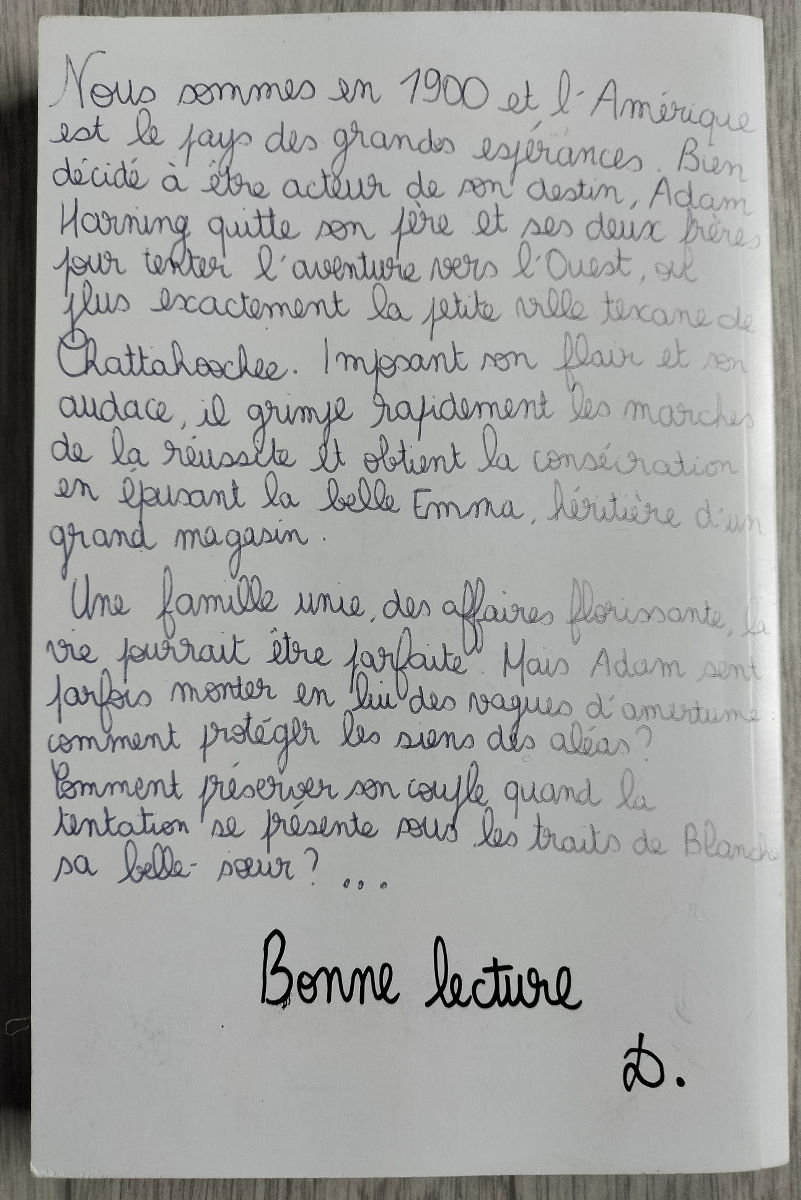 Nous sommes en 1900 et l'Amérique
est le pays des grands espérances. Bien
décidé à être acteur de son destin, Adam
Harning quitte son père et ses deux frères
pour tenter l'aventure vers l'Ouest, ou
plus exactement la petite ville texane de
Chattahoochee. Imposant son flair et son
audace, il grimpe rapidement les marches
de la réussite et obtient la consécration
en épusant la belle Emma, héritière d'un
grand magasin.
Une famille unie, des affaires florissante, la
vie pourrait être parfaite. Mais Adam sent
parfois monter en lui des vagues d'amertume.
comment protéger les siens des aléas?
Comment préserver son couple quand la
tentation se présente sous les traits de Blanche
sa belle-sœur? ...
Bonne lecture
D.